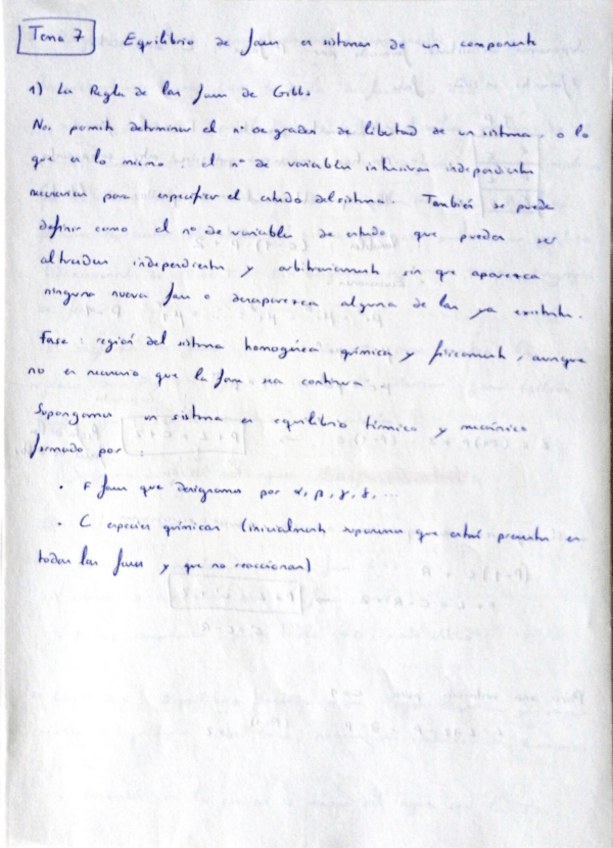 Tema 7 Equilibrio de fases en sistemas de un componente
1) La Regla de las fases de Gibbs
Nos permite determinar el nº de grados de libertad de un sistema, o lo
que es lo mismo el nº de variables intensivas independientes
necesarias para especificar el estado del sistema. También se puede
definir como el no de variables de estado que pueden ser
alteradas independientes y arbitrariamente sin que aparezca
ninguna nueva fase o desaparezca alguna de las ya existentes.
Fase: región del sistema homogénea química y físicamente, aunque
no es necesario que la fase sea continua.
Supongamos un sistema en equilibrio térmico y mecánico
formado por:
• F fases que designamos por α, β, γ, δ, ...
• C especies químicas (inicialmente suponemos que están presentes en
todas las fases y que no reaccionan)